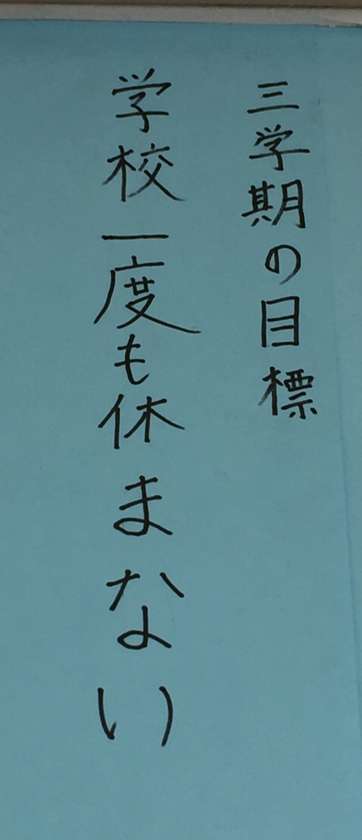 三学期の目標
学校一度も休まない